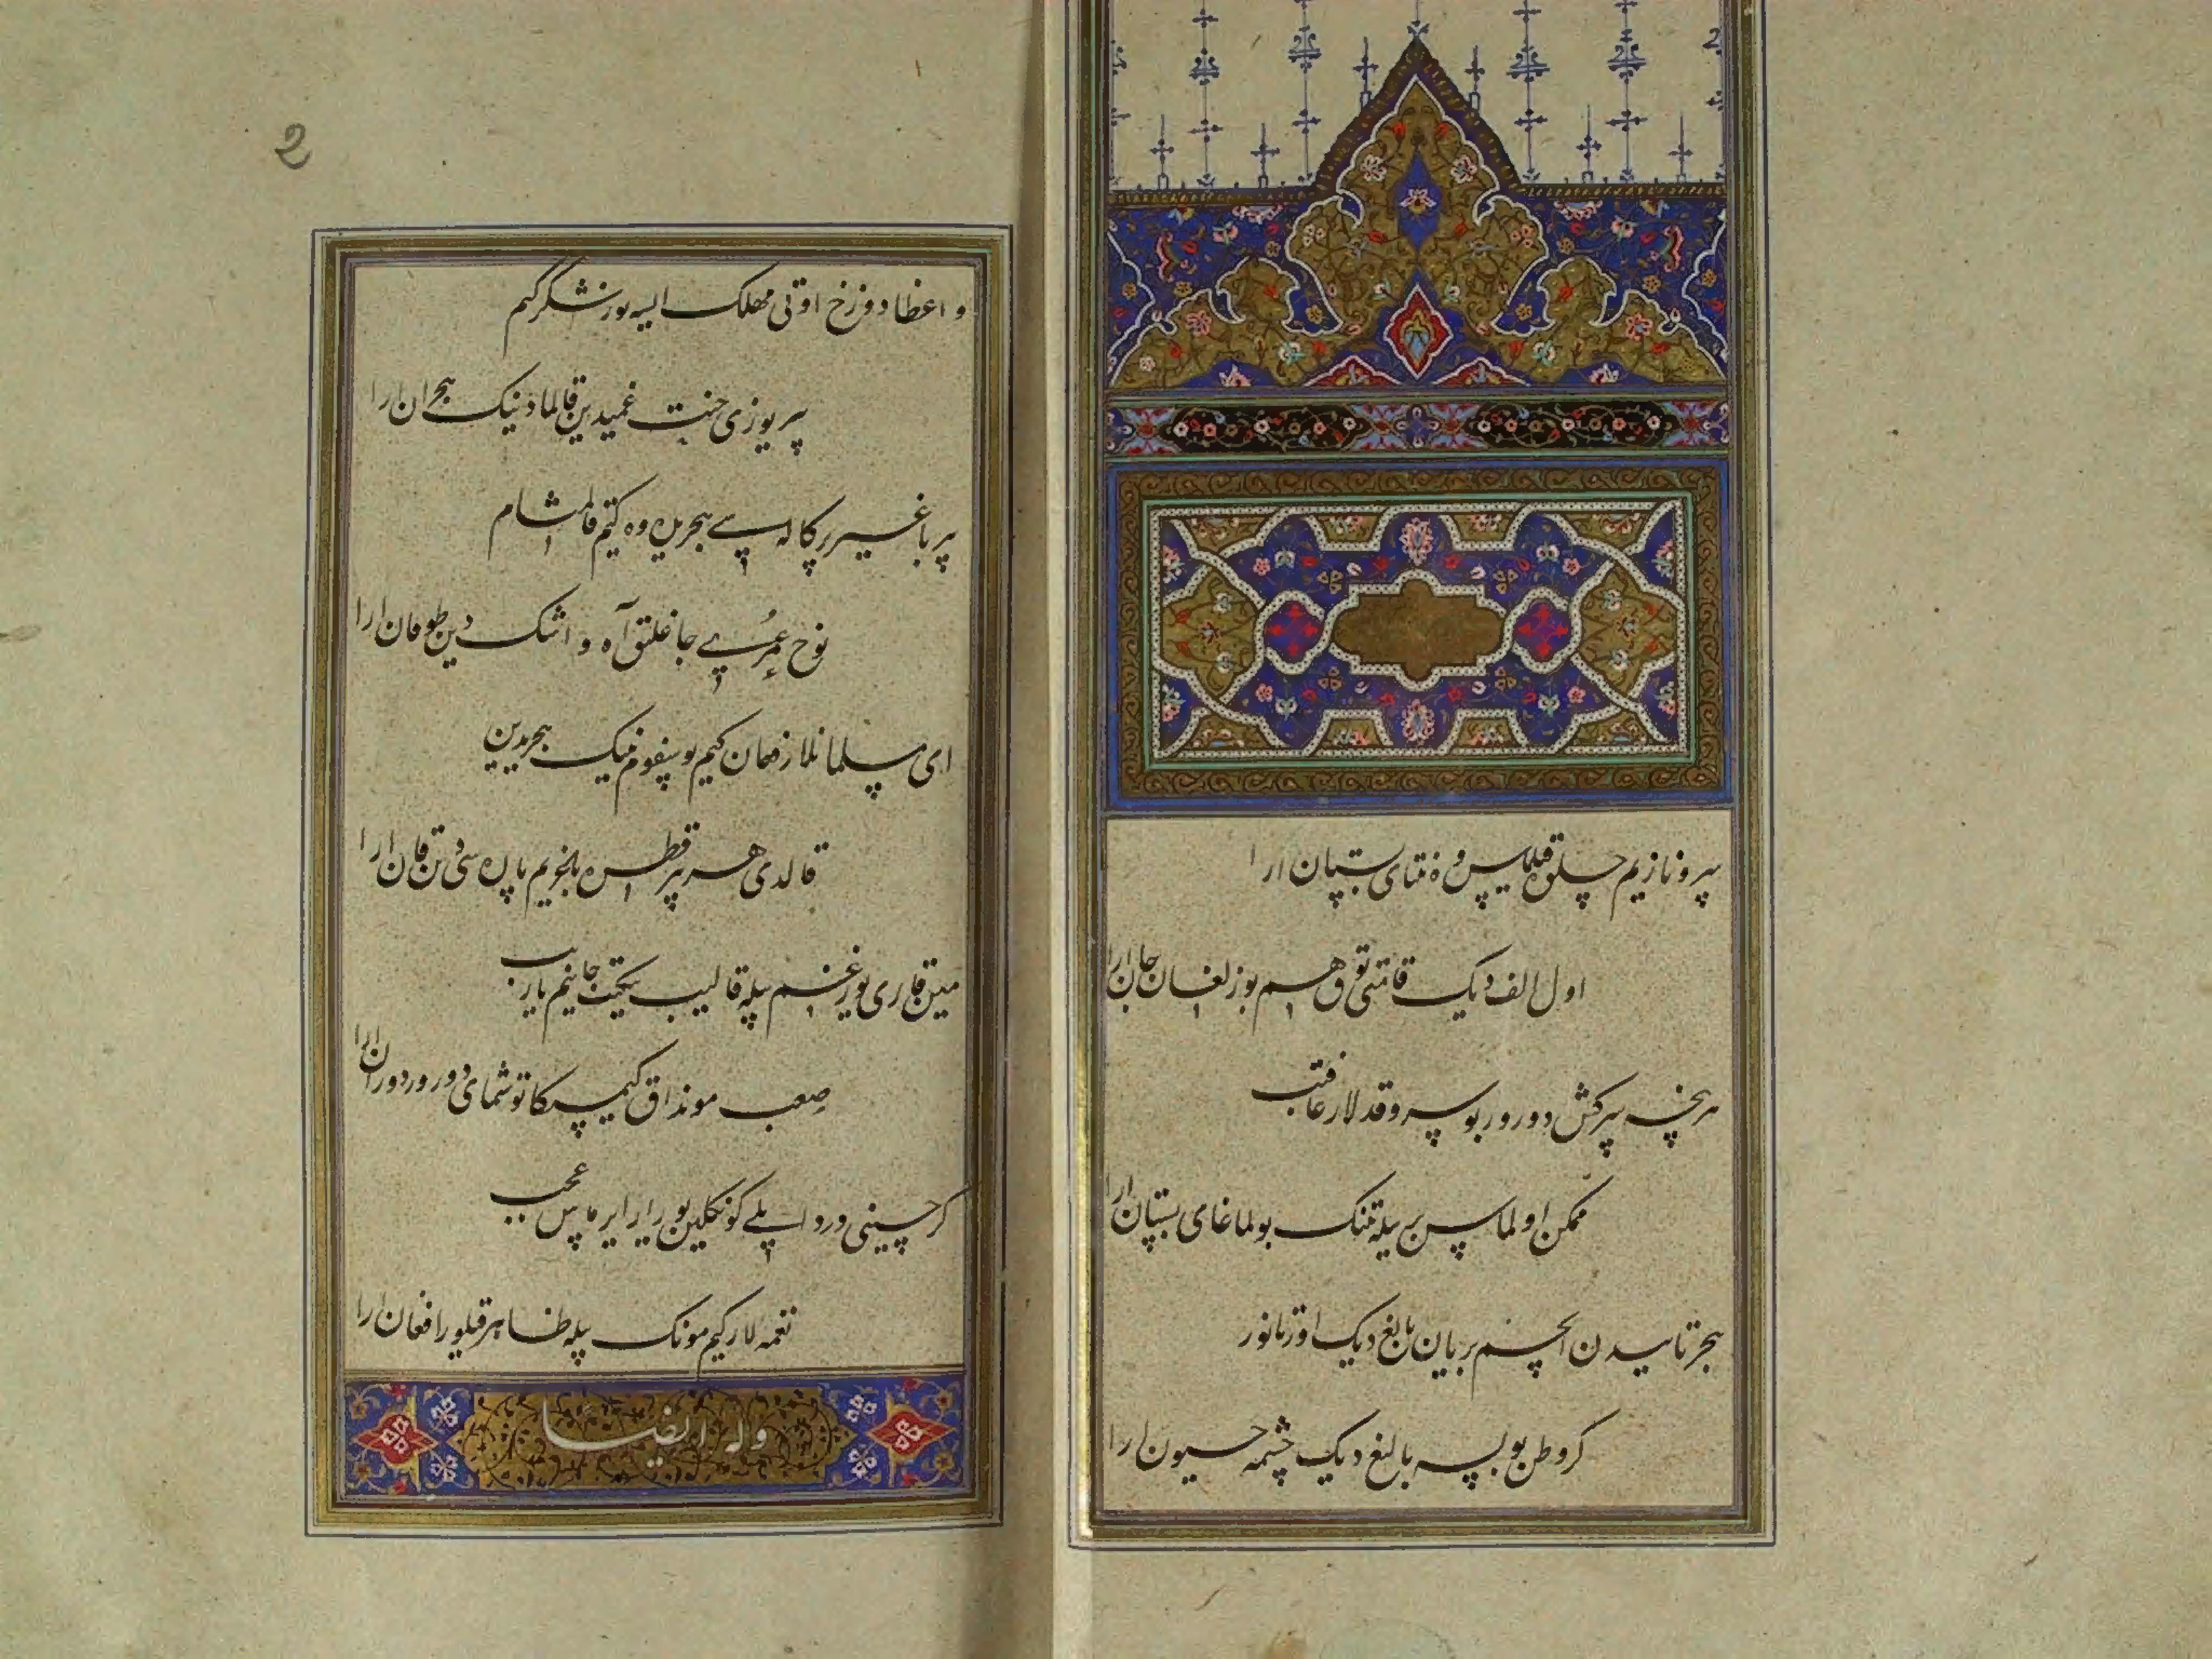 سرو نازیم جلوه قیلماس وه نتای بستان ارا
اول الف دیک قامتی توق هم بوزلغان جان ارا
هر نچه سرکش دورور بو سرو قدلار عاقبت
ممکن اولماس بری بیله تنک بولماغای بستان ارا
هجر تابیدن ایچم بریان بالیغ دیک اورتانور
کر وطن بولسه بالیغ دیک چشمه حیوان ارا
2
واعظا دوزخ اوتی مهلک ایسه یوز شکر کیم
یوزی جنت غمیدین قالمادینک هجران ارا
باغیر پرکاله سی هجریدین وه کیم قالمشام
نوح عمری چاغلیق آه و اشک دین طوفان ارا
ای مسلمانلار زمان کیم یوسفوم نینک هجریدین
قالدی هر بر قطره باغریم پاره سی دین قان ارا
مین قاری یوز غم بیله قالیب یکیت جانیم یارب
صعب مونداق کیمسکا توشمای دورور دوران ارا
کر حسینی درد ایله کونکلین یورار ایرماس عجب
نغمه لار کیم مونک بیله ظاهر قیلور افغان ارا
وله ایضا